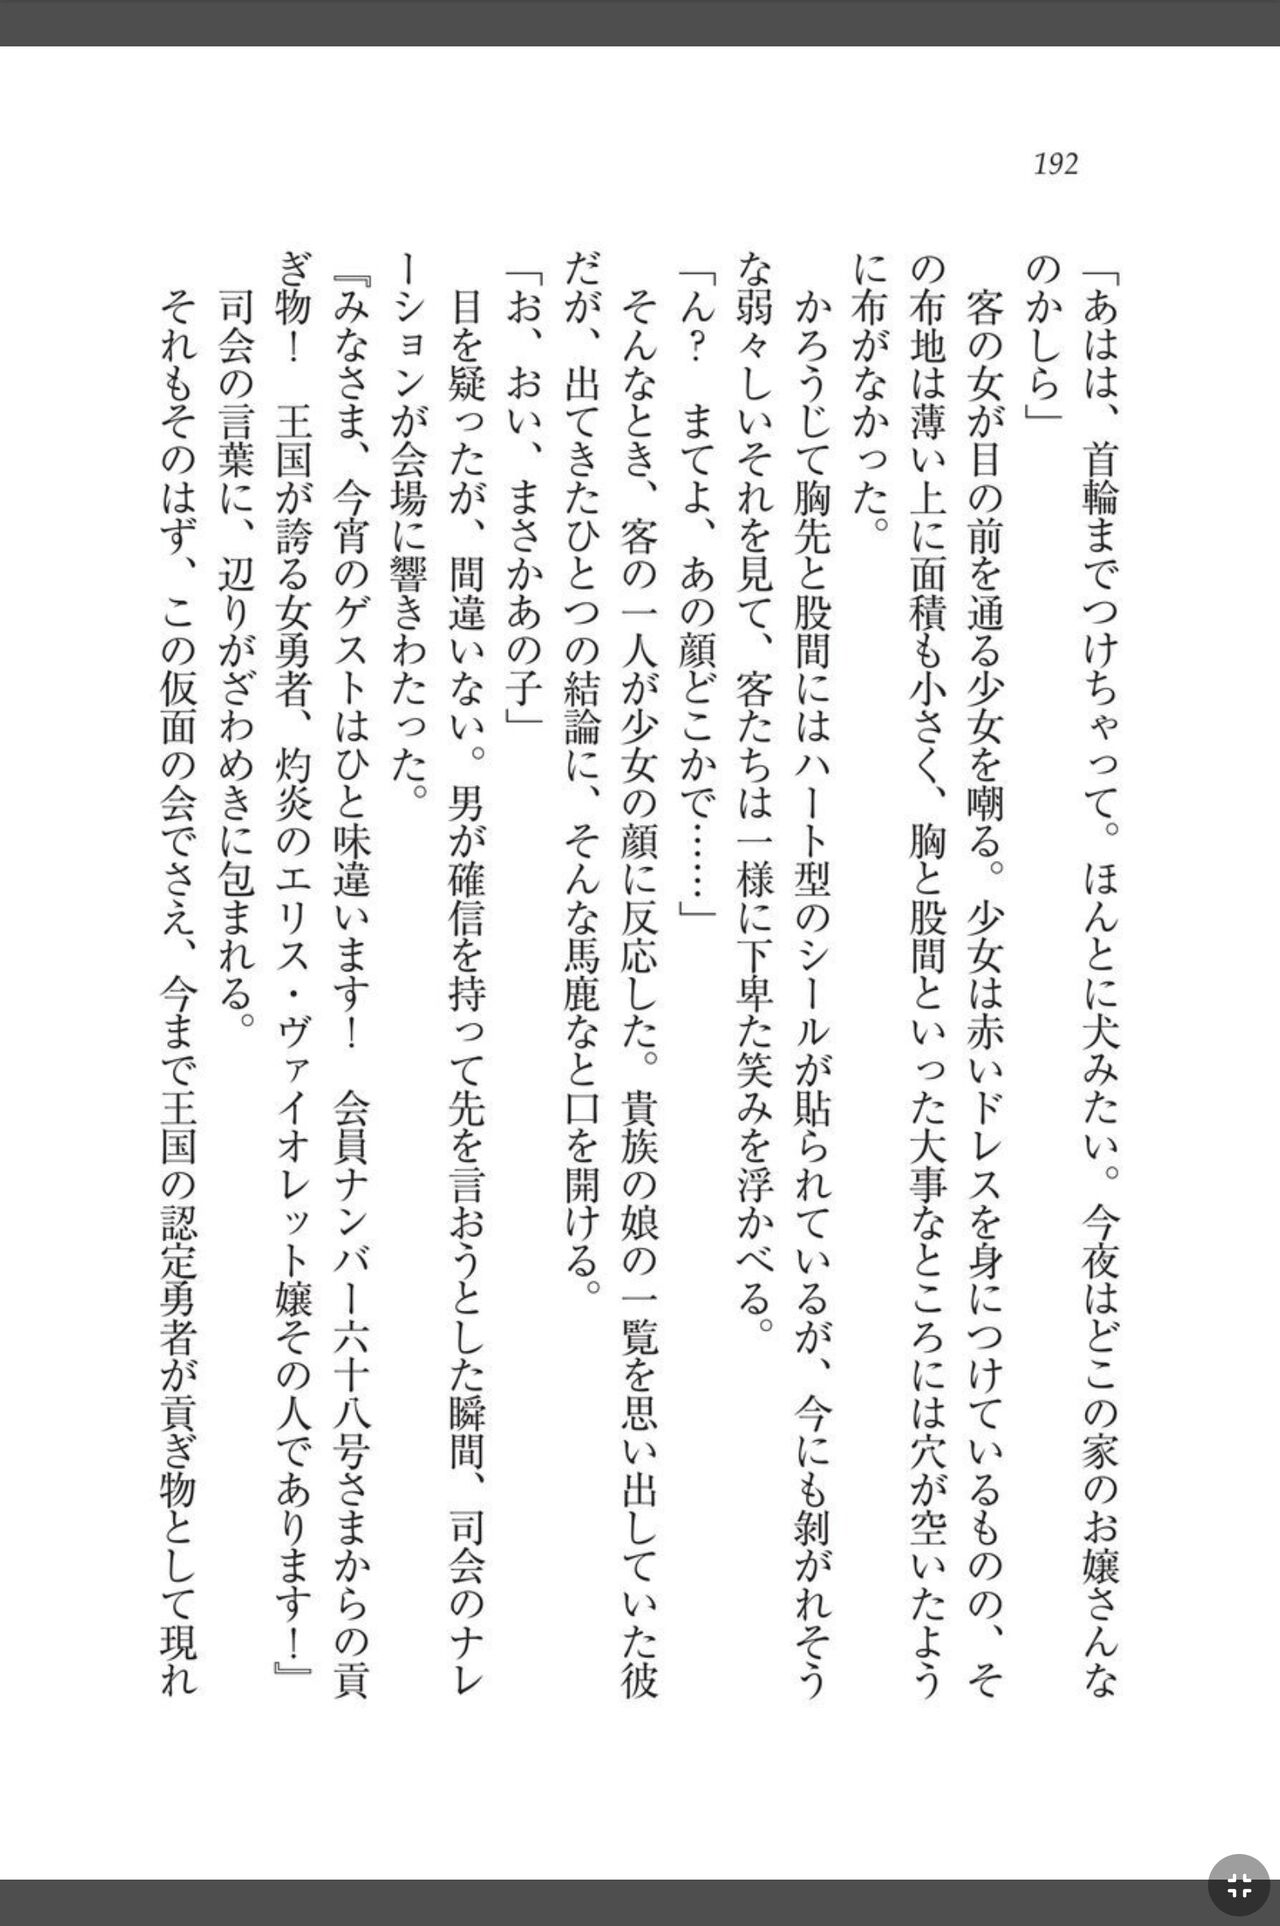 192
「あはは、首輪までつけちゃって。ほんとに犬みたい。今夜はどこの家のお嬢さんな
のかしら」
客の女が目の前を通る少女を嘲る。少女は赤いドレスを身につけているものの、そ
の布地は薄い上に面積も小さく、胸と股間といった大事なところには穴が空いたよう
に布がなかった。
かろうじて胸先と股間にはハート型のシールが貼られているが、今にも剝がれそう
な弱々しいそれを見て、客たちは一様に下卑た笑みを浮かべる。
「ん？　まてよ、あの顔どこかで……」
そんなとき、客の一人が少女の顔に反応した。貴族の娘の一覧を思い出していた彼
だが、出てきたひとつの結論に、そんな馬鹿なと口を開ける。
「お、おい、まさかあの子」
目を疑ったが、間違いない。男が確信を持って先を言おうとした瞬間、司会のナレ
ーションが会場に響きわたった。
『みなさま、今宵のゲストはひと味違います！　会員ナンバー六十八号さまからの貢
ぎ物！　王国が誇る女勇者、灼炎のエリス・ヴァイオレット嬢その人であります！』
司会の言葉に、辺りがざわめきに包まれる。
それもそのはず、この仮面の会でさえ、今まで王国の認定勇者が貢ぎ物として現れ